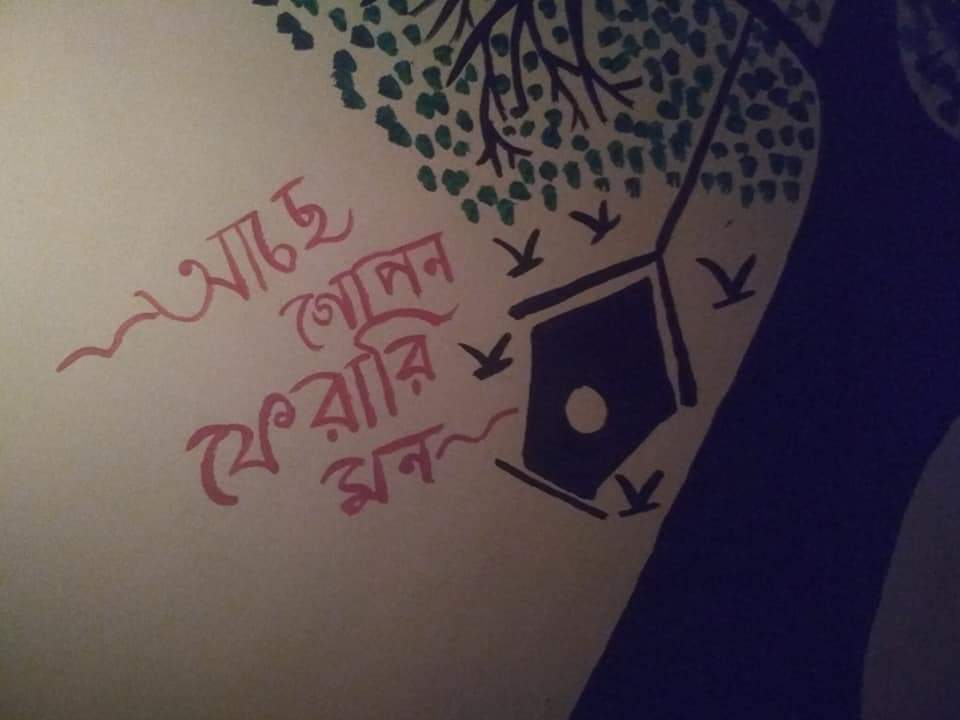 আছে
গোপন
ফেরারি
মন